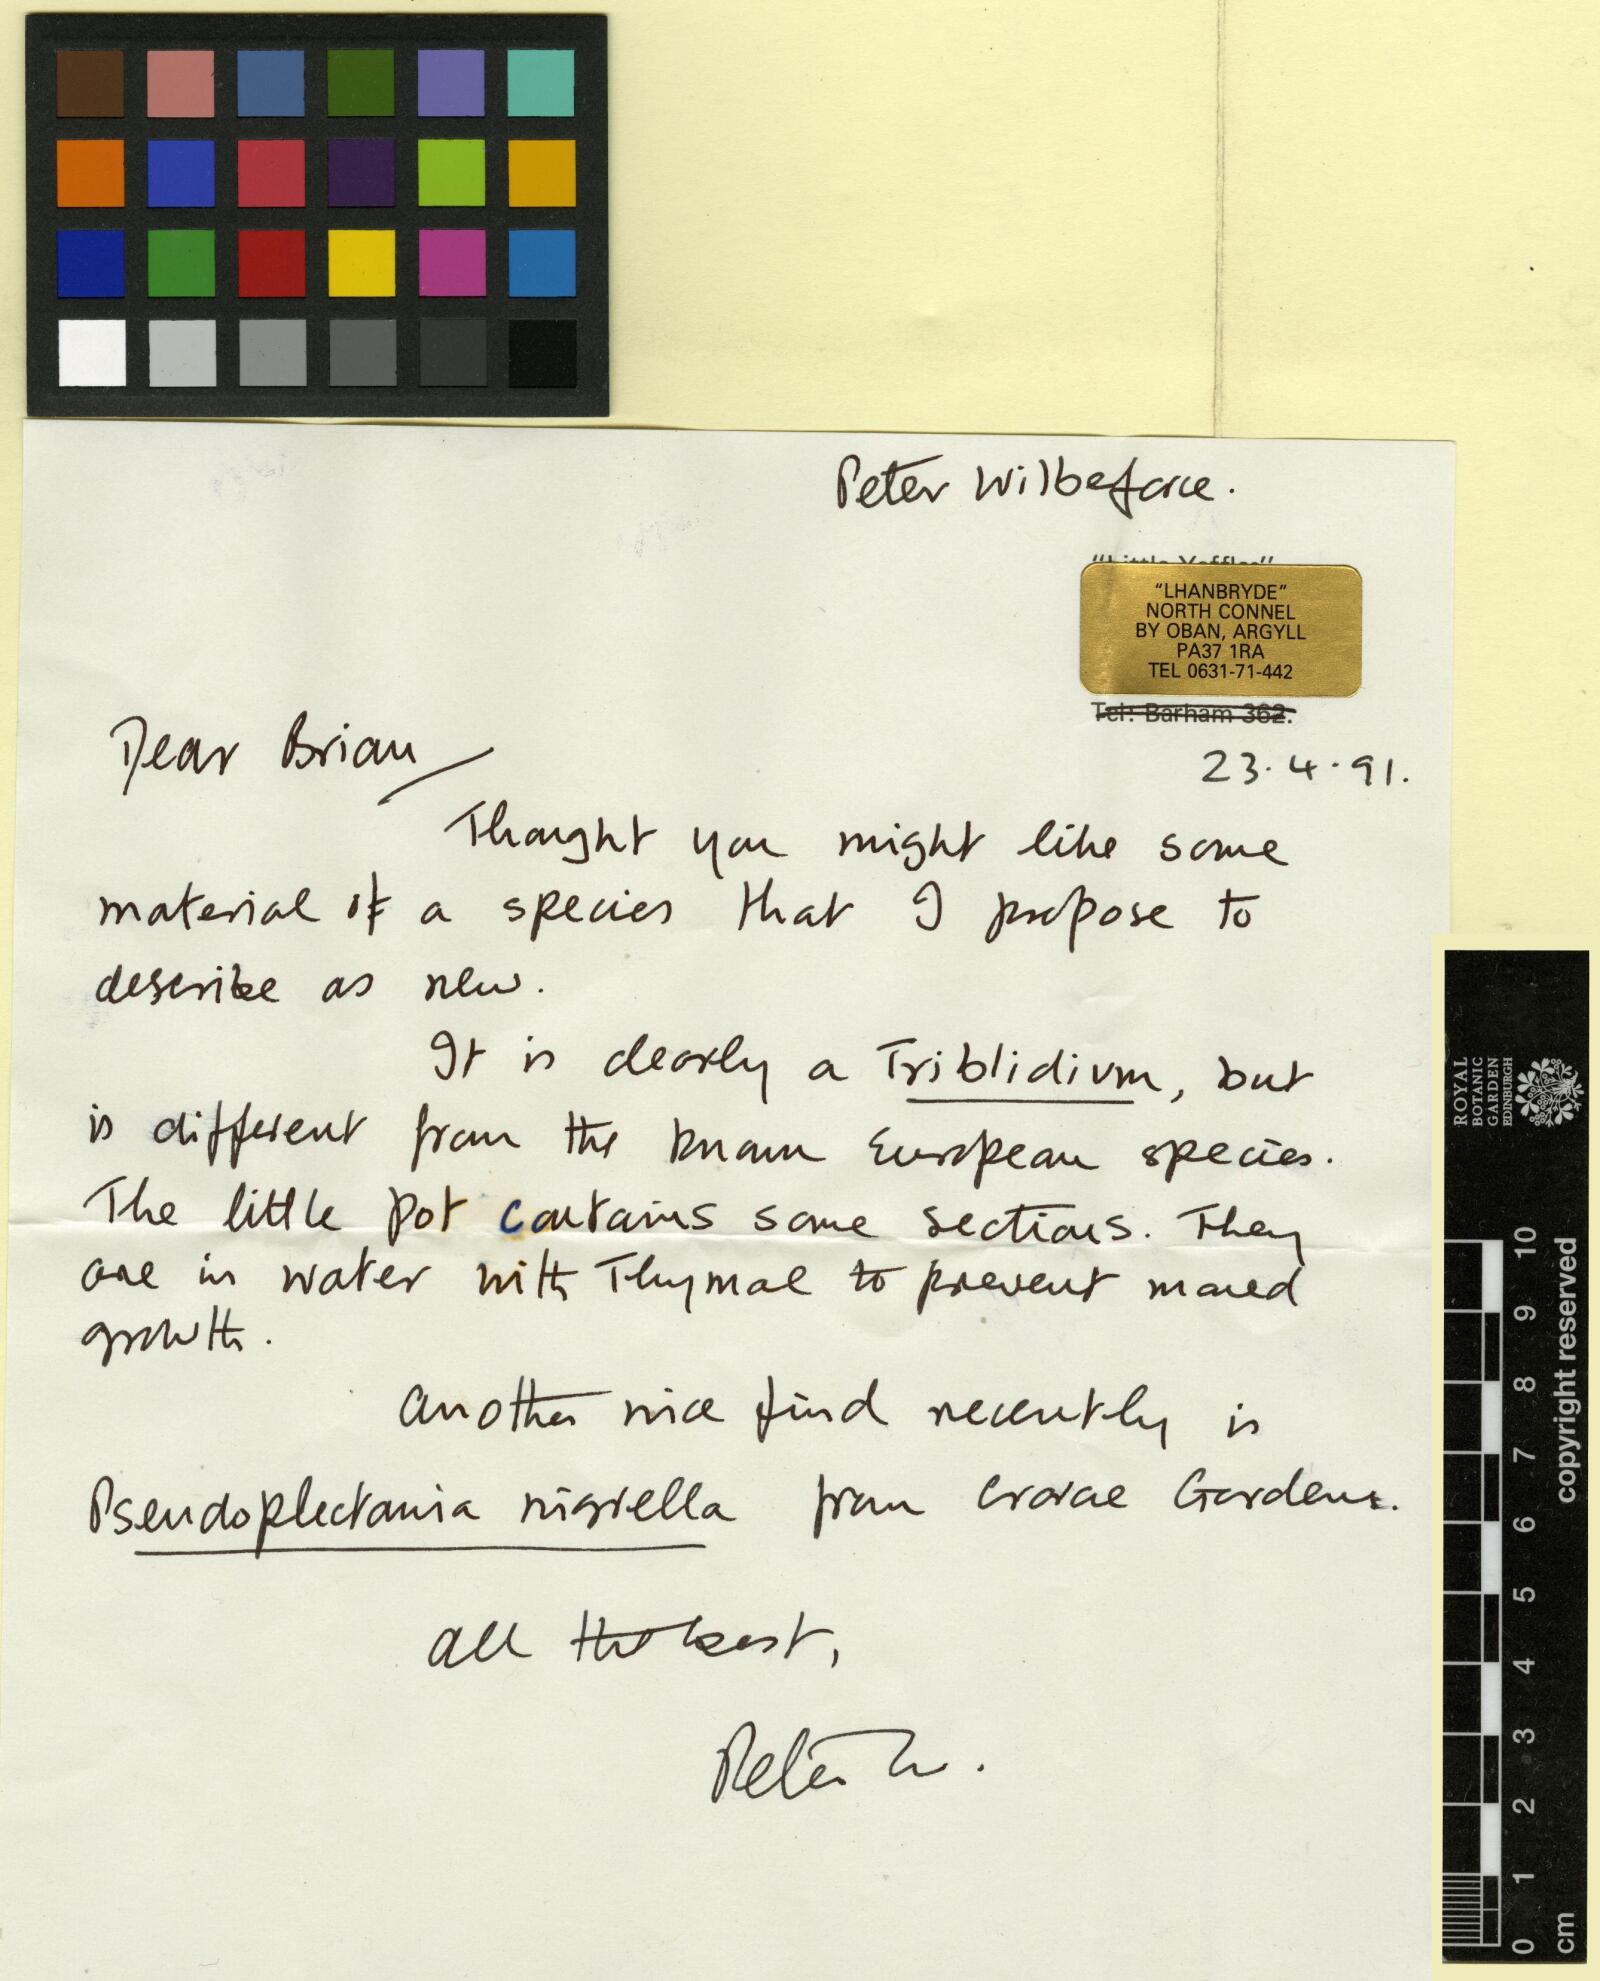 Peter Wilbeforce.
"Little Yaffles"
"LHANBRYDE"
NORTH CONNEL
BY OBAN, ARGYLL
PA37 1RA
TEL 0631-71-442
Tel: Barham 362.
23.4.91.
Dear Brian
Thought you might like some
material of a species that I propose to
describe as new.
It is clearly a Triblidium, but
is different from the known European species.
The little pot contains some sections. They
are in water with Thymol to prevent mould
growth.
Another nice find recently is
Pseudoplectania nigrella from Crarae Gardens.
All the best,
Peter W.
ROYAL
BOTANIC
GARDEN
EDINBURGH
10
9
8
7
6
5
4
3
2
1
0
cm
copyright reserved